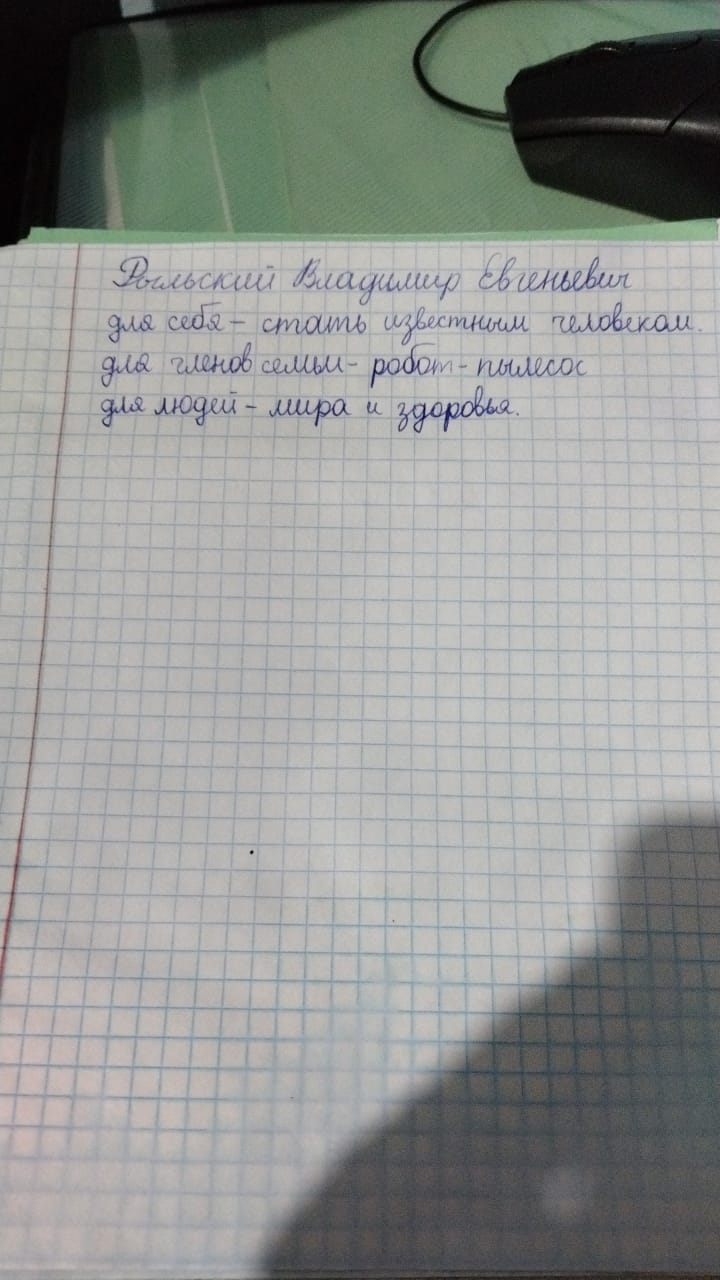 Рыльский Владимир Евгеньевич
для себя - стать известным человеком.
для членов семьи - робот - пылесос
для людей - мира и здоровья.